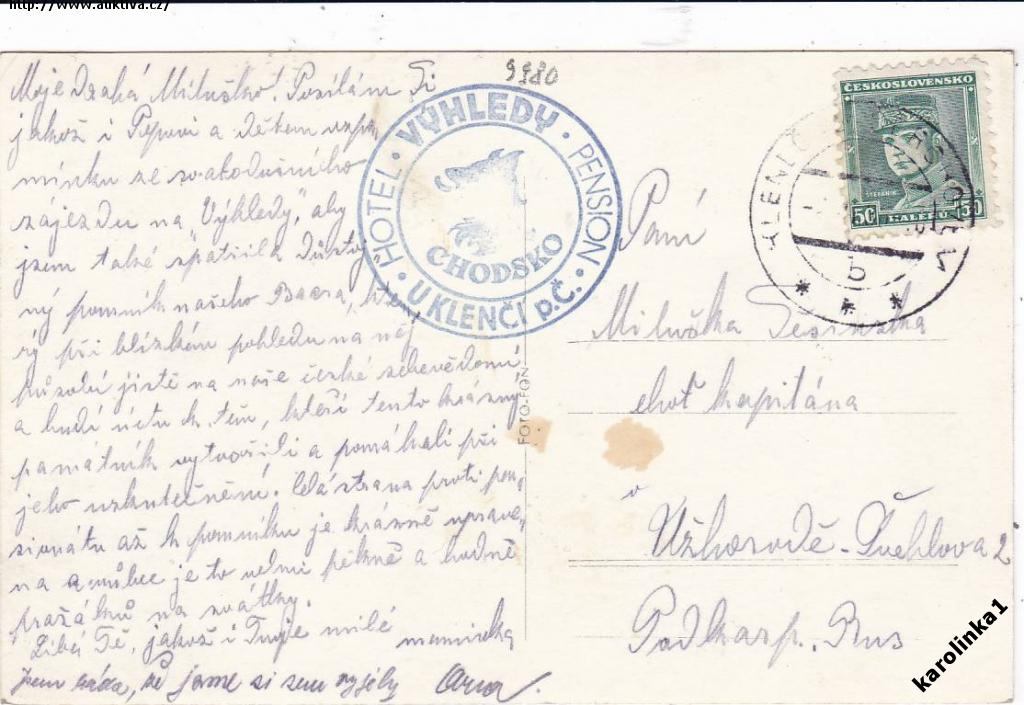 http://www.auktiva.cz/
9980
Moje drahá Miluško! Posílám Ti
jakož i Pepovi a dětem vzpo-
mínku ze svatodušního
zájezdu na „Výhledy", aby
jsem také spatřila důstoj
ný pomník našeho Baara, kte
rý při blízkém pohledu na něj
působí jistě na naše české sebevědomí
a budí úctu k těm, kteří tento krásný
památník vytvořili a pomáhali při
jeho uskutečnění. Celá strana proti pen-
sionátu až k pomníku je krásně uprave-
na a vůbec je to velmi pěkné a hodně
pražáků na svátky.
Líbá Tě, jakož i Tvoje milé maminka
jsem ráda, že jsme si sem vyjely
HOTEL · VÝHLEDY · PENSION
CHODSKO
U KLENČÍ p.Č.
FOTO-FON
ČESKOSLOVENSKO
ŠTEFÁNIK
50 HALÉŘŮ 50
KLENČÍ
b
Paní
Miluška
choť kapitána
v
Užhorodě - Švehlova 2
Podkarp. Rus
karolinka1